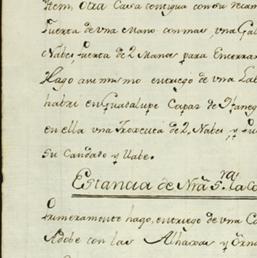 Item, Otra Casa contigua con su Recam
Puerta de vna Mano con mas vna Gal
Naves Puerta de 2 Manos para Encerrar
Hago assimismo entriego de vna Lab
habri en Guadalupe Capas de Haneg
en ella vna Troxcita de 2 Naves y Pu
Su Candado y llabe.
Estancia de Nrã S.ra la Co
Primeramente hago, entriego de vna Ca
Adobe con las Alhaxas y Orna